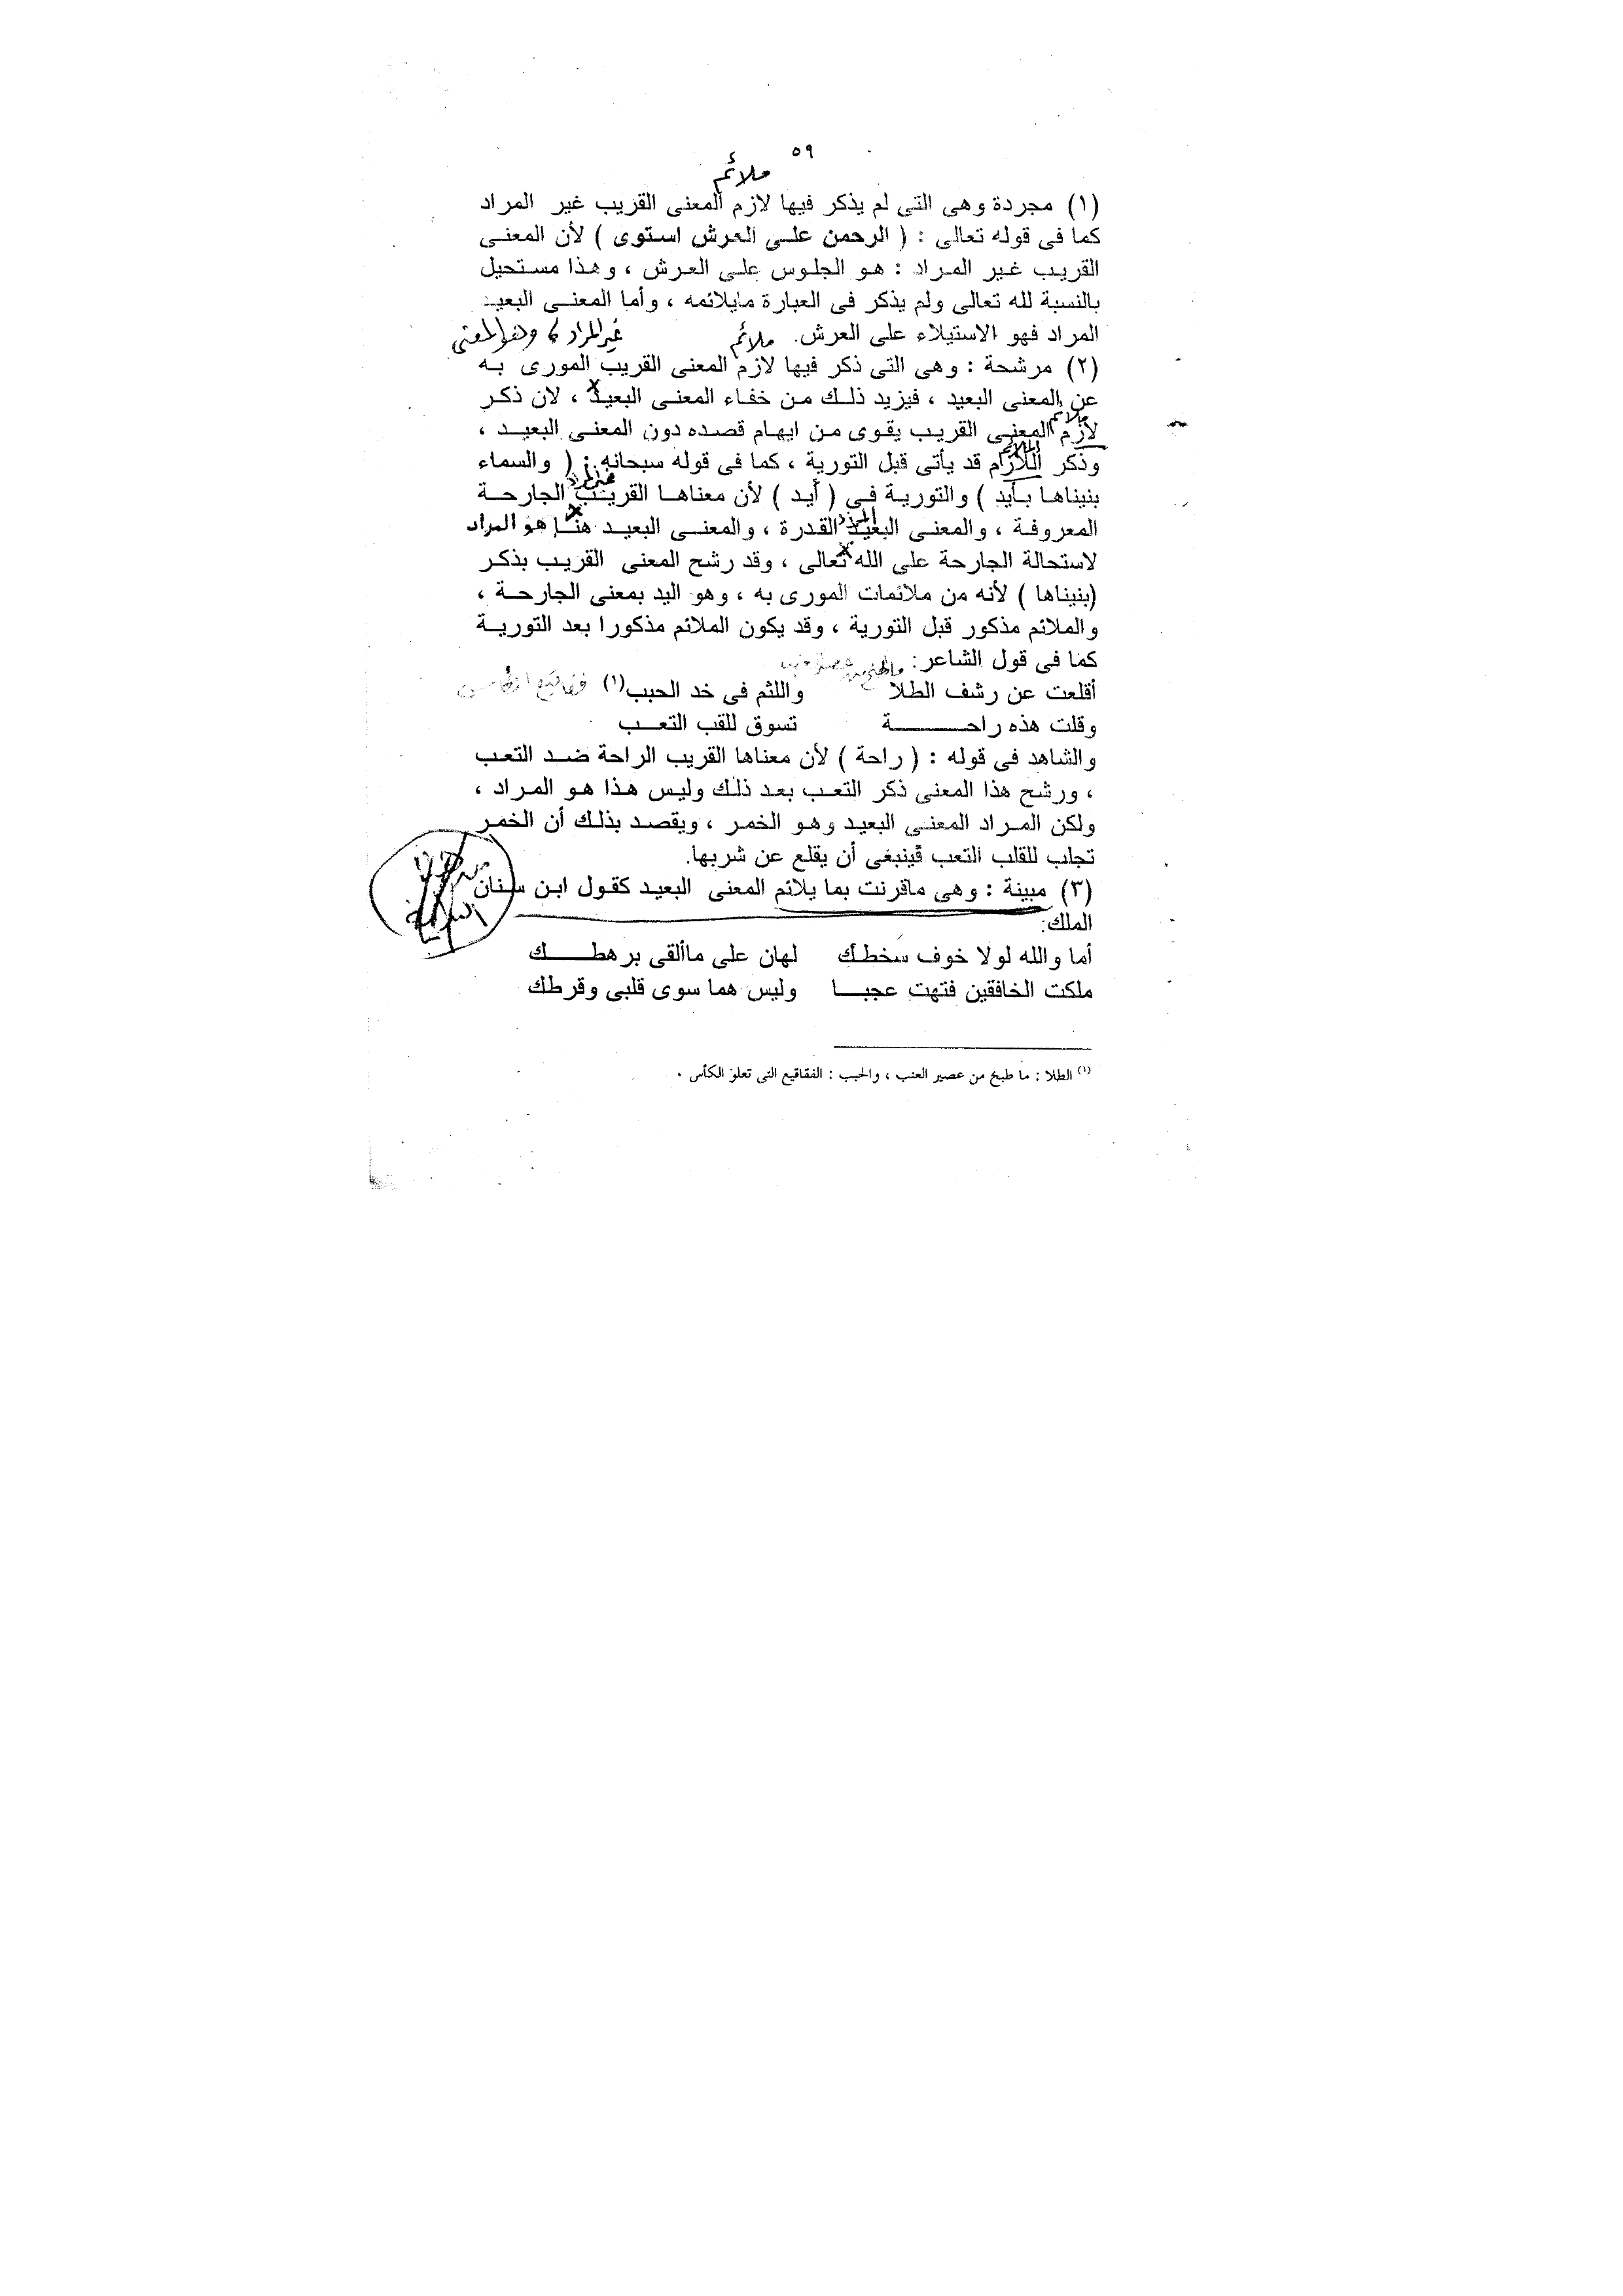 ٥٩
ملائم
(١) مجردة وهى التى لم يذكر فيها لازم المعنى القريب غير المراد
كما فى قوله تعالى : ( الرحمن على العرش استوى ) لأن المعنى
القريب غير المراد : هو الجلوس على العرش ، وهذا مستحيل
بالنسبة لله تعالى ولم يذكر فى العبارة مايلائمه ، وأما المعنى البعيد
المراد فهو الاستيلاء على العرش. ملائم غير المراد وهو المعنى
(٢) مرشحة : وهى التى ذكر فيها لازم المعنى القريب المورى به
عن المعنى البعيد ، فيزيد ذلك من خفاء المعنى البعيد ، لان ذكر
ملائم
لازم المعنى القريب يقوى من ايهام قصده دون المعنى البعيد ،
وذكر اللازم قد يأتى قبل التورية ، كما فى قوله سبحانه : ( والسماء
بنيناها بأيد ) والتورية فى ( أيد ) لأن معناها القريب الجارحة
المعروفة ، والمعنى البعيد القدرة ، والمعنى البعيد هنا هو المراد
لاستحالة الجارحة على الله تعالى ، وقد رشح المعنى القريب بذكر
(بنيناها ) لأنه من ملائمات المورى به ، وهو اليد بمعنى الجارحة ،
والملائم مذكور قبل التورية ، وقد يكون الملائم مذكورا بعد التورية
كما فى قول الشاعر:
أقلعت عن رشف الطلا واللثم فى خد الحبب(١)
وقلت هذه راحـــة تسوق للقب التعب
والشاهد فى قوله : ( راحة ) لأن معناها القريب الراحة ضد التعب
، ورشح هذا المعنى ذكر التعب بعد ذلك وليس هذا هو المراد ،
ولكن المراد المعنى البعيد وهو الخمر ، ويقصد بذلك أن الخمر
تجلب للقلب التعب فينبغى أن يقلع عن شربها.
(٣) مبينة : وهى ماقرنت بما يلائم المعنى البعيد كقول ابن سنان
الملك:
أما والله لولا خوف سخطك لهان على ماألقى برهطـــك
ملكت الخافقين فتهت عجبـا وليس هما سوى قلبى وقرطك
(١) الطلا : ما طبخ من عصير العنب ، والحبب : الفقاقيع التى تعلو الكأس .